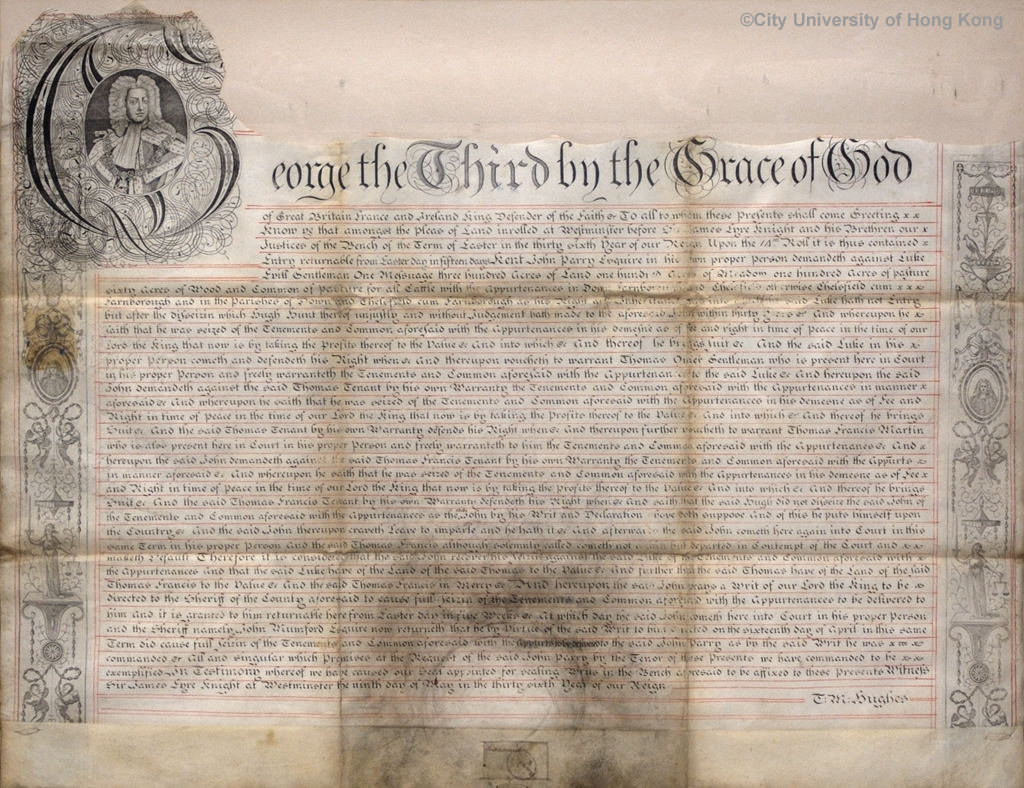 ©City University of Hong Kong
George the Third by the Grace of God
of Great Britain France and Ireland King Defender of the Faith &c To all to whom these Presents shall come Greeting x x
Know ye that amongst the Pleas of Land inrolled at Westminster before Sir James Eyre Knight and his Brethren our x
Justices of the Bench of the Term of Easter in the thirty sixth Year of our Reign Upon the Roll it is thus contained
Entry returnable from Easter day in fifteen days Kent John Parry Esquire in his own proper person demandeth against Luke
Evill Gentleman One Messuage three hundred Acres of Land one hundred Acres of Meadow one hundred Acres of pasture
sixty Acres of Wood and Common of pasture for all Cattle with the Appurtenances in Farnborough and otherwise Chelsfield cum x x x
Farnborough and in the Parishes of Down and Chelsfield cum Farnborough as his Right and Inheritance And into which the said Luke hath not Entry
but after the Disseizin which Hugh Hunt thereof unjustly and without Judgement hath made to the aforesaid John within thirty years &c And whereupon he x
saith that he was seized of the Tenements and Common aforesaid with the Appurtenances in his demesne as of fee and right in time of Peace in the time of our
Lord the King that now is by taking the Profits thereof to the Value &c And into which &c And thereof he brings suit &c And the said Luke in his x
proper person cometh and defendeth his Right when &c And thereupon voucheth to warrant Thomas Gentleman who is present here in Court
in his proper Person and freely warranteth the Tenements and Common aforesaid with the Appurtenances to the said Luke &c And hereupon the said
John demandeth against the said Thomas Tenant by his own Warranty the Tenements and Common aforesaid with the Appurtenances in manner x
aforesaid &c And whereupon he saith that he was seized of the Tenements and Common aforesaid with the Appurtenances in his demesne as of Fee and
Right in time of Peace in the time of our Lord the King that now is by taking the Profits thereof to the Value &c And into which &c And thereof he brings
Suit &c And the said Thomas Tenant by his own Warranty defends his Right when &c And thereupon further voucheth to warrant Thomas Francis Martin
who is also present here in Court in his proper Person and freely warranteth to him the Tenements and Common aforesaid with the Appurtenances &c And x
hereupon the said John demandeth against the said Thomas Francis Tenant by his own Warranty the Tenements and Common aforesaid with the Appurts x
in manner aforesaid &c And whereupon he saith that he was seized of the Tenements and Common aforesaid with the Appurtenances in his demesne as of Fee x
and Right in time of Peace in the time of our Lord the King that now is by taking the profits thereof to the Value &c And into which &c And thereof he brings
Suit &c And the said Thomas Francis Tenant by his own Warranty defendeth his Right when &c And saith that the said Hugh did not disseize the said John of
the Tenements and Common aforesaid with the Appurtenances as the John by his Writ and Declaration above doth suppose And of this he puts himself upon
the Country &c And the said John thereupon craveth Leave to imparle and he hath it &c And afterwards the said John cometh here again into Court in this
same Term in his proper Person And the said Thomas Francis although solemnly called cometh not again but departed in Contempt of the Court and x x
maketh Default Therefore it is considered that the said John recover his against the said Luke of the Tenements and Common aforesaid with x
the Appurtenances And that the said Luke have of the Land of the said Thomas to the Value &c And further that the said Thomas have of the Land of the said
Thomas Francis to the Value &c And the said Thomas Francis in Mercy &c And hereupon the said John prays a Writ of our Lord the King to be x
directed to the Sheriff of the County aforesaid to cause full Seizin of the Tenements and Common aforesaid with the Appurtenances to be delivered to
him And it is granted to him returnable here from Easter day in five Weeks &c At which day the said John cometh here into Court in his proper Person
and the Sheriff namely John Mumford Esquire now returneth that he by Virtue of the said Writ to him directed on the sixteenth day of April in this same
Term did cause full Seizin of the Tenements and Common aforesaid with the Appurtenances to the said John Parry as by the said Writ he was x x
commanded &c All and singular which Premises at the Request of the said John Parry by the Tenor of these Presents we have commanded to be x x
exemplified In Testimony whereof we have caused our Seal appointed for sealing Writs in the Bench aforesaid to be affixed to these Presents Witness
Sir James Eyre Knight at Westminster the ninth day of May in the thirty sixth Year of our Reign
T. M. Hughes